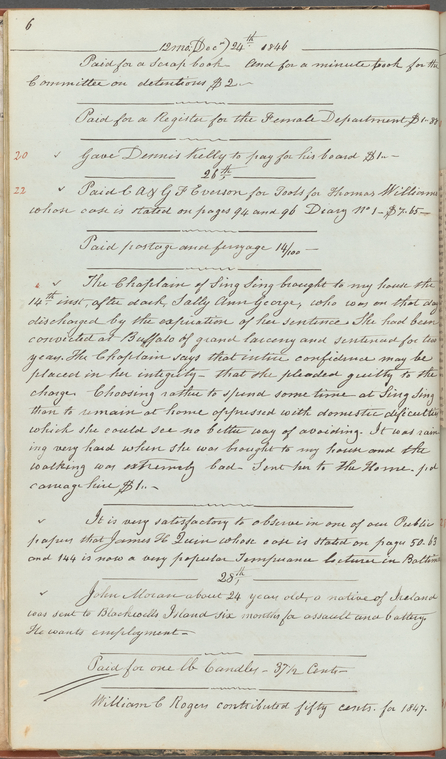 6
12 mo (Dec^r) 24^th 1846
Paid for a Scrap book - And for a minute book for the
Committee on detentions $2.-
Paid for a Register for the Female Department $1-88
20 Gave Dennis Kelly to pay for his board $1.-
26^th
22 Paid C A & G F Everson for Tools for Thomas Williams
whose case is stated on pages 94 and 96 Diary No 1- $7.65-
Paid postage and ferryage 14/100 -
The Chaplain of Sing Sing brought to my house the
14^th inst, after dark, Sally Ann George, who was on that day
discharged by the expiration of her sentence. She had been
convicted at Buffalo of grand larceny and sentenced for two
years. The Chaplain says that intire confidence may be
placed in her integrity - that she pleaded guilty to the
charge. Choosing rather to spend some time at Sing Sing
than to remain at home oppressed with domestic difficulties
which she could see no better way of avoiding. It was rain
ing very hard when she was brought to my house and the
walking was extremely bad - Sent her to the Home. pd
carriage hire $1.-
It is very satisfactory to observe in one of our Public
papers that James H Quin whose case is stated on pages 50. 63
and 144 is now a very popular Temperance Lecturer in Baltimore
28^th
John Moran about 24 years old, a native of Ireland
was sent to Blackwells Island six months for assault and battery.
He wants employment -
Paid for one lb Candles - 37 1/2 Cents
William C Rogers contributed fifty cents. for 1847.